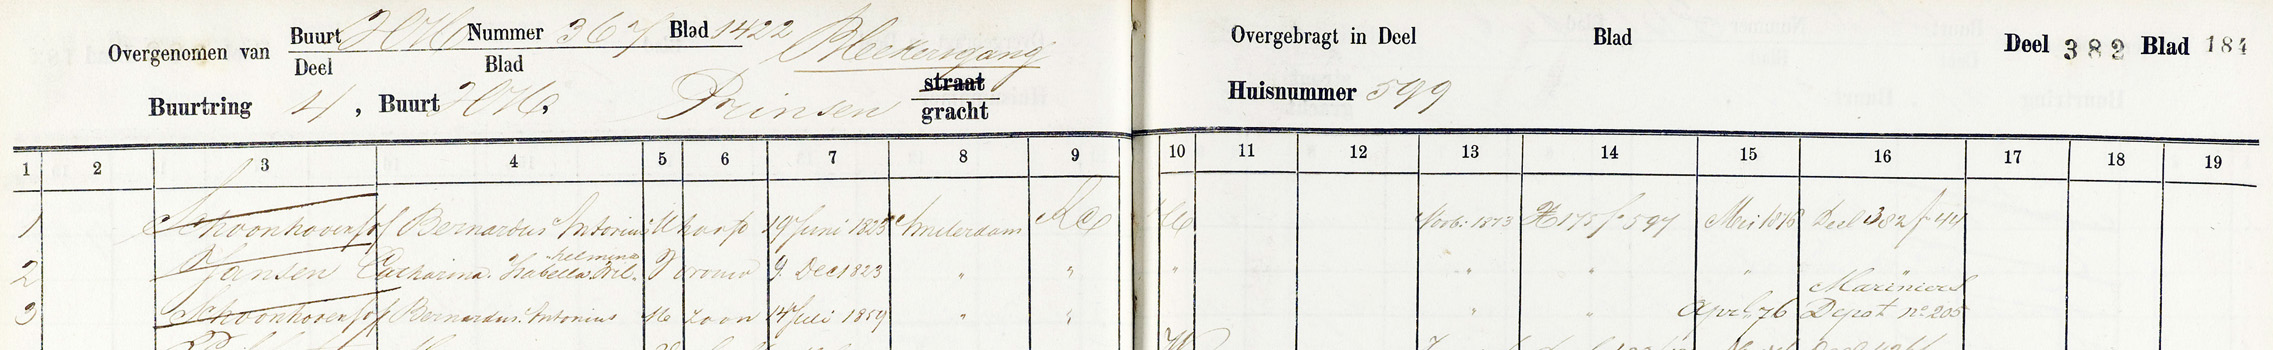 Overgenomen van Buurt Nummer 367 Blad 1422 Bleekersgang
Deel Blad
Buurtring 4, Buurt Prinsen straat gracht
Overgebragt in Deel Blad
Deel 382 Blad 184
Huisnummer 599
1 2 3 4 5 6 7 8 9 10 11 12 13 14 15 16 17 18 19
1 Schoonhovenhof Bernardus Antonius M hoofd 19 Juni 1823 Amsterdam Novb. 1873 175 f 597 Mei 1876 Deel 382 f 44
2 Jansen Catharina Isabella Wilhelmina V vrouw 9 Dec 1823 " " " " " "
3 Schoonhovenhof Bernardus Antonius M zoon 14 Juli 1859 " " " " April 76 Mariniers
Depot no 205